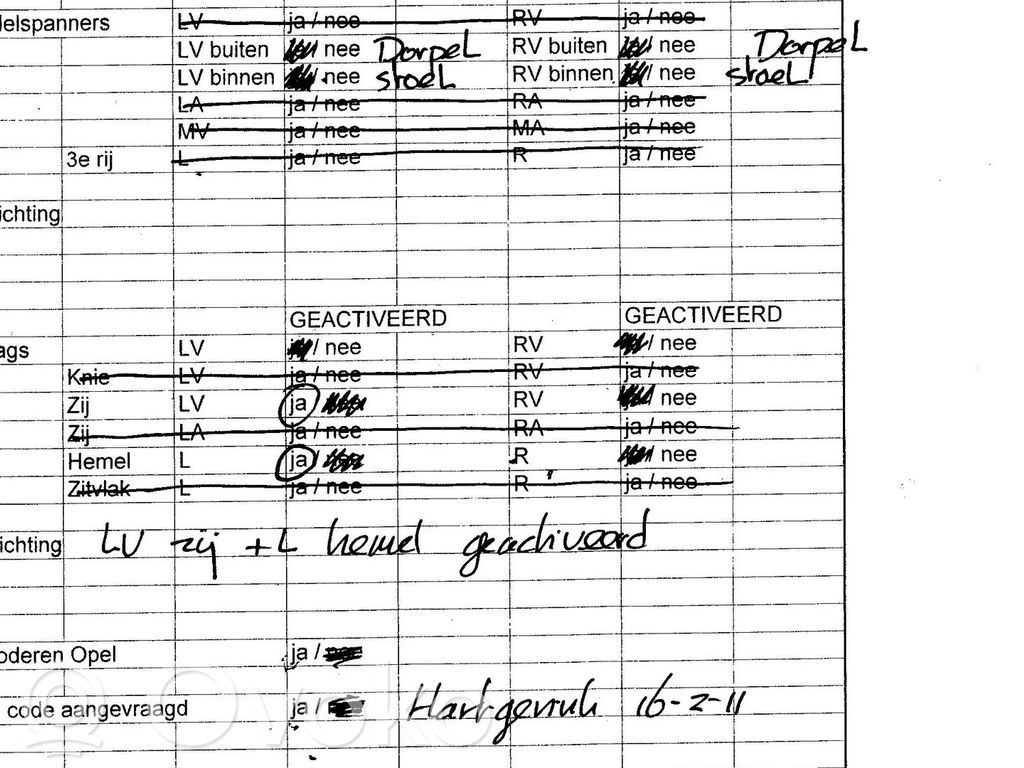 delspanners LV ja / nee RV ja / nee
LV buiten nee Dorpel RV buiten / nee Dorpel
LV binnen nee stoel RV binnen / nee stoel
LA ja / nee RA ja / nee
MV ja / nee MA ja / nee
3e rij L ja / nee R ja / nee
ichting
GEACTIVEERD GEACTIVEERD
ags LV / nee RV / nee
Knie LV ja / nee RV ja / nee
Zij LV ja / RV nee
Zij LA ja / nee RA ja / nee
Hemel L ja / R / nee
Zitvlak L ja / nee R ja / nee
ichting LV zij + L hemel geactiveerd
oderen Opel ja /
code aangevraagd ja / 16-2-11
Ovoko